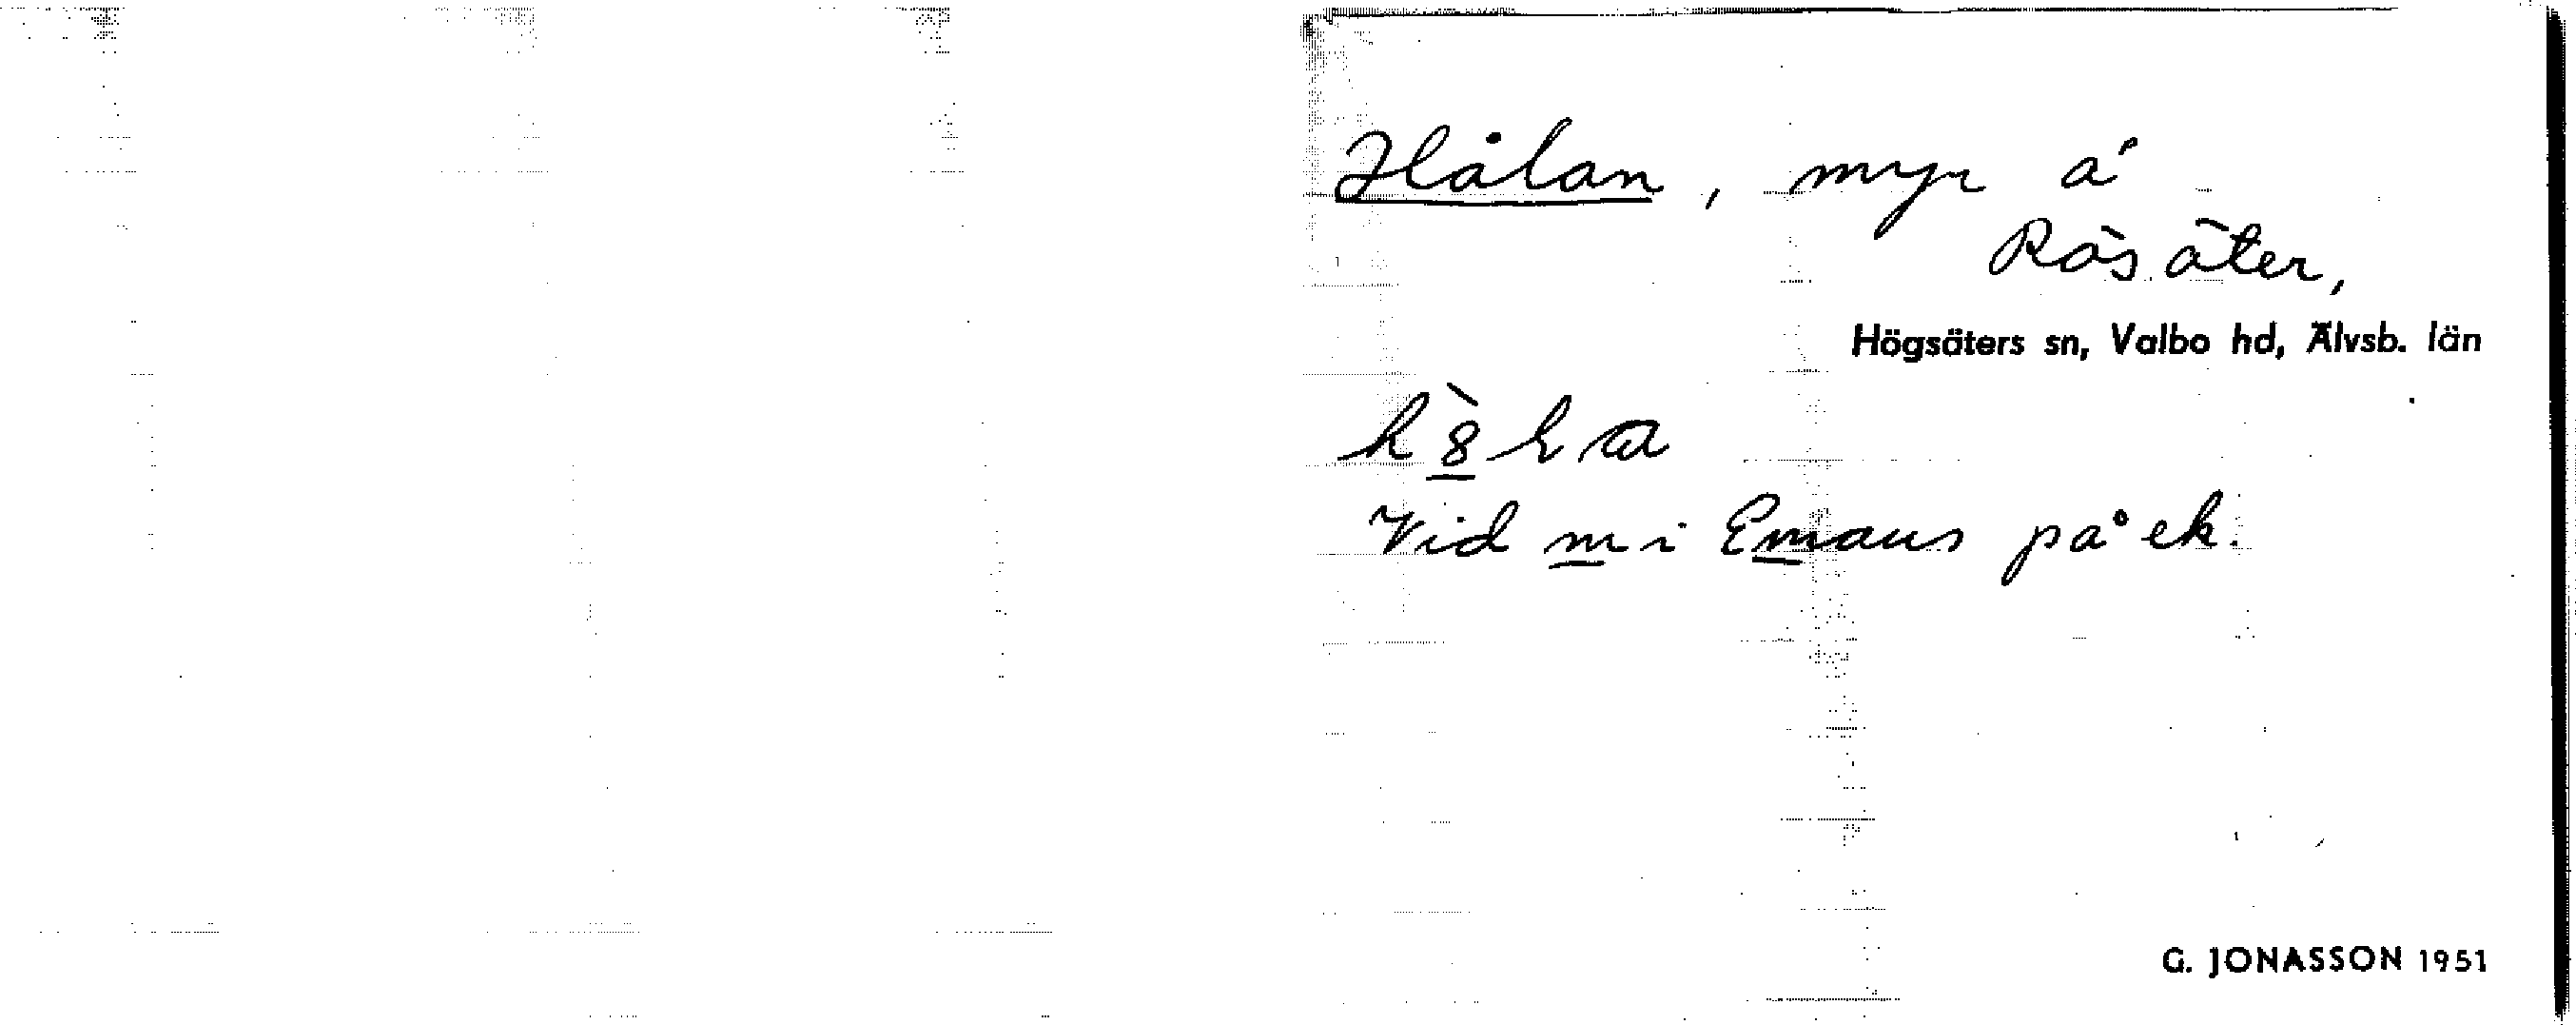 Hålan, myr å
Rösäter,
Högsäters sn, Valbo hd, Älvsb. län
Vid m i Emaus på ek.
G. JONASSON 1951